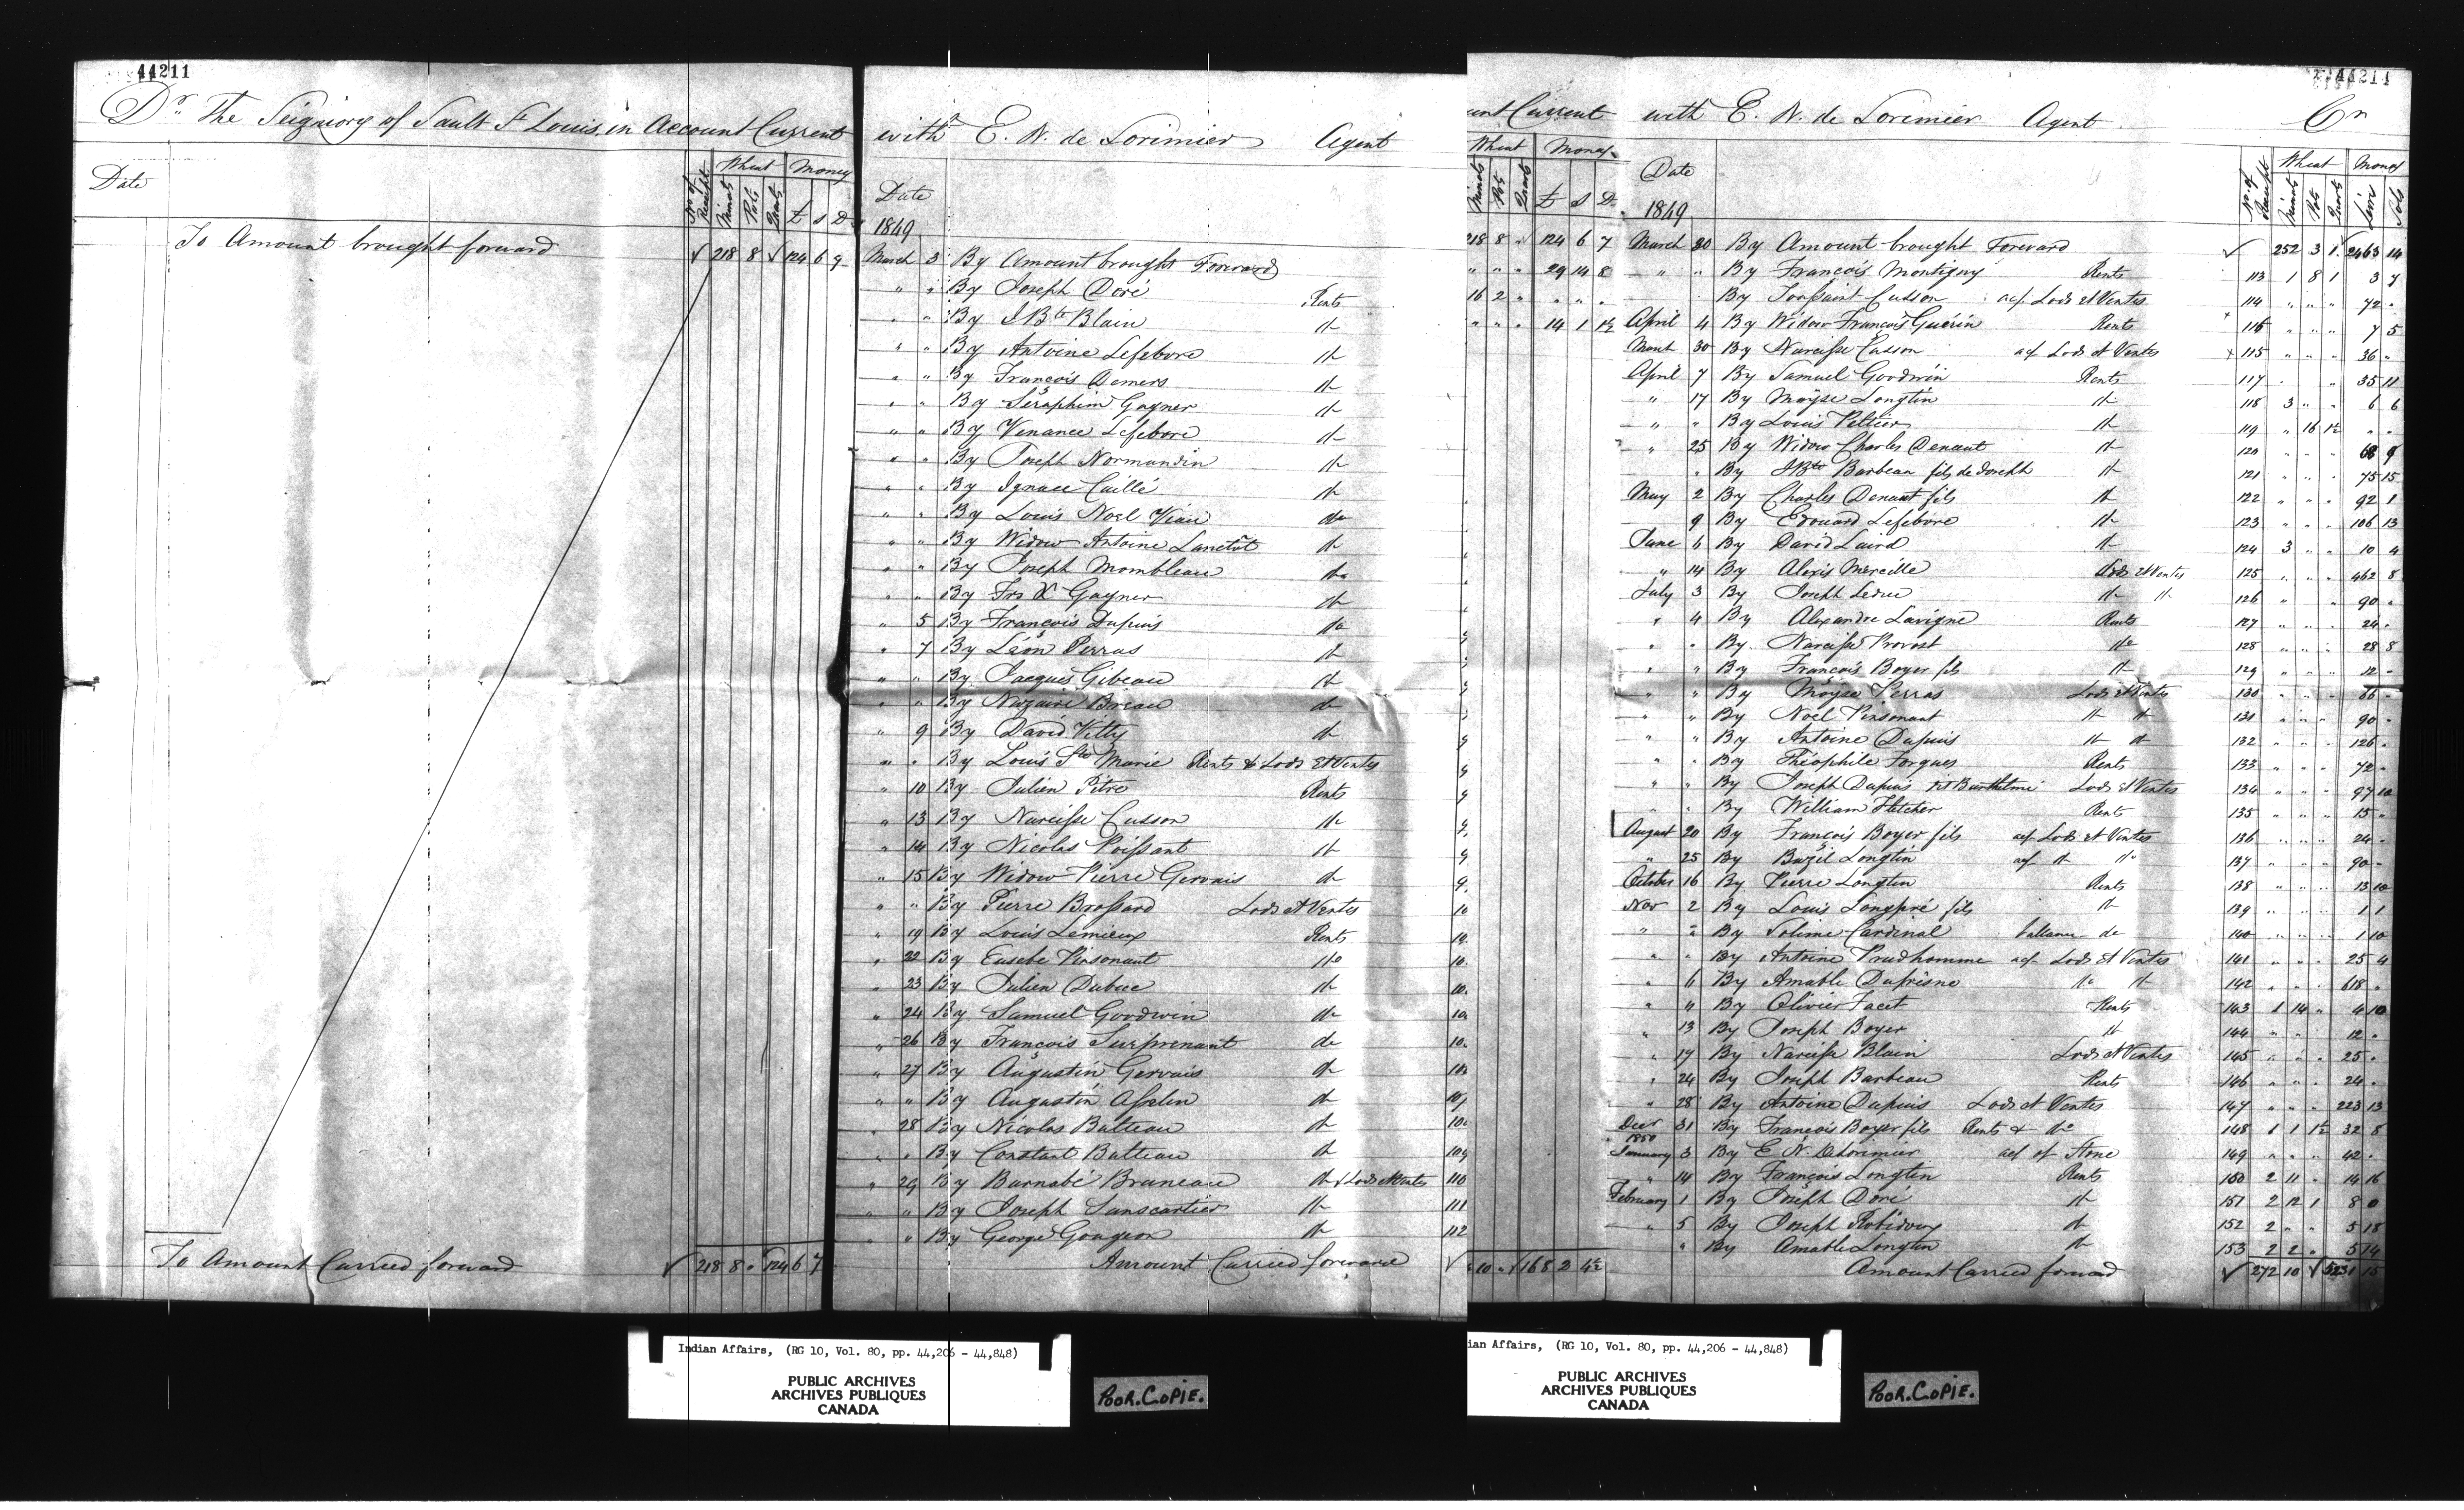 44211
Dr. The Seigniory of Sault St Louis, in Account Current
Date
No of Receipt
Wheat Money
Minots Pots Quarts £ s D
To Amount brought forward √ 218 8 √ 124 6 9
To Amount Carried forward √ 218 8 " 124 6 7
with E. N. de Lorimier Agent
Date
1849
March 3 By Amount brought Forward
" " By Joseph Doré Rents
" " By J Bte Blain do
" " By Antoine Lefebvre do
" " By François Demers do
" " By Séraphim Gagner do
" " By Venance Lefebvre do
" " By Joseph Normandin do
" " By Ignace Caillé do
" " By Louis Noel Viau do
" " By Widow Antoine Lanctôt do
" " By Joseph Mombleau do
" " By Frs X Gagner do
" 5 By François Dupuis do
" 7 By Léon Perras do
" " By Jacques Gibeau do
" " By Nazaire Breau do
" 9 By David Vitty do
" " By Louis Ste Marie Rents & Lods et Ventes
" 10 By Julien Pitre Rents
" 13 By Narcisse Cusson do
" 14 By Nicolas Poissant do
" 15 By Widow Pierre Gervais do
" " By Pierre Brossard Lods et Ventes
" 19 By Louis Lemieux Rents
" 22 By Eusebe Pinsonaut do
" 23 By Julien Dubuc do
" 24 By Samuel Goodwin do
" 26 By François Surprenant do
" 27 By Augustin Gervais do
" " By Augustin Asselin do
" 28 By Nicolas Batteau do
" " By Constant Batteau do 109
" 29 By Barnabé Bruneau do & Lods et Ventes 110
" " By Joseph Sanscartier do 111
" " By George Gougeon do 112
Amount Carried forward √
44211
unt Current with E. N. de Lorimier Agent Cr
Wheat Money
Minots Pots Quarts £ s D
218 8 " 124 6 7
" " " 29 14 8
16 2 " " " "
" " " 14 1 1½
10 " √ 168 2 4½
Date
1849
No of Receipt
Wheat Money
Minots Pots Quarts Livres Sols
March 30 By Amount brought Forward √ 252 3 1 2463 14
" " By François Montigny Rents 113 1 8 1 3 7
By Toussaint Cusson acf. Lods et Ventes 114 " " " 72 "
April 4 By Widow François Guérin Rents 116 " " " 7 5
March 30 By Narcisse Cusson acf Lods et Ventes 115 " " " 36 "
April 7 By Samuel Goodwin Rents 117 " " 35 11
" 17 By Moÿse Longtin do 118 3 " " 6 6
" " By Louis Peltier do 119 " 16 1½ " "
" 25 By Widow Charles Denaut do 120 " " " 68 9
" By J Bte Barbeau fils de Joseph do 121 " " " 75 15
May 2 By Charles Denaut fils do 122 " " " 92 1
9 By Edouard Lefebvre do 123 " " " 106 13
June 6 By David Laird do 124 3 " " 10 4
" 14 By Alexis Mereille Lods et Ventes 125 " " " 462 8
July 3 By Joseph Leduc do do 126 " " 90 "
" 4 By Alexandre Lavigne Rents 127 " " " 24 "
" " By Narcisse Provost do 128 " " " 28 8
" " By François Boyer fils do 129 " " " 12 "
" " By Moÿse Perras Lods et Ventes 130 " " " 66 "
" " By Noël Pinsonaut do do 131 " " " 90 "
" " By Antoine Dupuis do do 132 " " " 126 "
" " By Théophile Forgues Rents 133 " " " 72 "
" " By Joseph Dupuis fils Barthelmi Lods et Ventes 134 " " " 97 10
" " By William Fletcher Rents 135 " " " 15 "
August 20 By François Boyer fils acf Lods et Ventes 136 " " " 24 "
" 25 By Bazil Longtin acf do do 137 " " " 90 "
October 16 By Pierre Longtin Rents 138 " " " 13 10
Nov 2 By Louis Longpré fils do 139 " " " 1 1
" " By Solime Cardinal ballance do 140 " " " 1 10
" " By Antoine Prudhomme acf Lods et Ventes 141 " " " 25 4
" 6 By Amable Dufrisne do do 142 " " " 618 "
" " By Olivier Facet Rents 143 1 14 " 4 10
" 13 By Joseph Boyer do 144 " " 12 "
" 17 By Narcisse Blain Lods et Ventes 145 " " " 25 "
" 24 By Joseph Barbeau Rents 146 " " " 24 "
" 28 By Antoine Dupuis Lods et Ventes 147 " " " 223 13
Decr 31 By François Boyer fils Rents & do 148 1 1 1½ 32 8
1850
January 3 By E N. DeLorimier acf of Stone 149 " " " 42 "
" 14 By François Longtin Rents 150 2 11 " 14 16
February 1 By Joseph Doré do 151 2 12 1 8 0
" 5 By Joseph Robidoux do 152 2 " " 5 18
" By Amable Longtin do 153 2 2 " 5 14
Amount Carried forward √ 272 10 √ 5231 15
Indian Affairs, (RG 10, Vol. 80, pp. 44,206 - 44,848)
PUBLIC ARCHIVES
ARCHIVES PUBLIQUES
CANADA
POOR.COPIE.
ian Affairs, (RG 10, Vol. 80, pp. 44,206 - 44,848)
PUBLIC ARCHIVES
ARCHIVES PUBLIQUES
CANADA
POOR.COPIE.